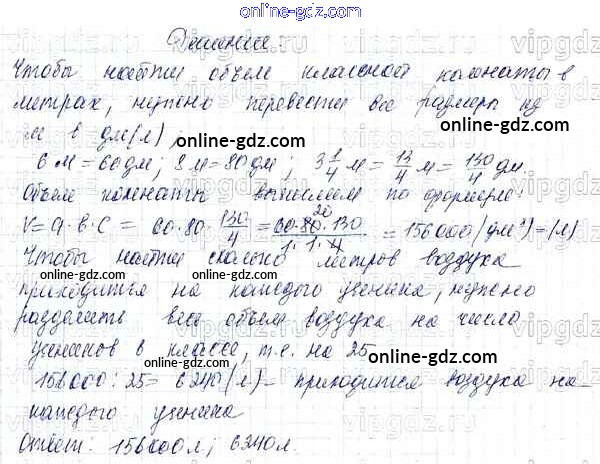 online-gdz.com
Решение:
Чтобы найти объем классной комнаты в
литрах, нужно перевести все размеры из
м в дм(л)
online-gdz.com
6 м = 60 дм; 8 м = 80 дм; 3 1/4 м = 13/4 м = 130/4 дм.
Объем комнаты вычисляем по формуле:
V = a · b · c = 60 · 80 · 130/4 = 60·80·130/1·1·4 20 = 156000 (дм³) = (л)
Чтобы найти сколько литров воздуха
online-gdz.com
приходится на каждого ученика, нужно
разделить весь объем воздуха на число
учеников в классе, т.е. на 25
online-gdz.com
156000 : 25 = 6240 (л) – приходится воздуха на
каждого ученика
Ответ: 156000 л; 6240 л.
online-gdz.com